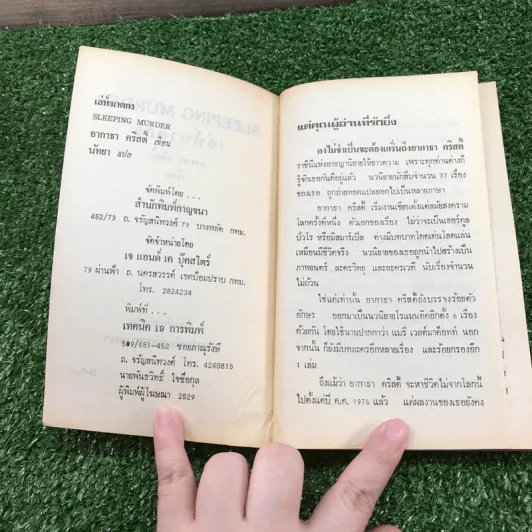 เล่ห์ฆาตกร
SLEEPING MURDER
อากาธา คริสตี้ เขียน
นัทยา แปล
จัดพิมพ์โดย ...
สำนักพิมพ์กาญจนา
452/73 ถ. จรัญสนิทวงศ์ 79 บางพลัด กทม.
จัดจำหน่ายโดย
เจ แอนด์ เค บุ๊คสโตร์
79 ผ่านฟ้า ถ. นครสวรรค์ เขตป้อมปราบ กทม.
โทร. 2824234
พิมพ์ที่ ...
เทคนิค 19 การพิมพ์
509/451-452 ซอยภาณุรังษี
ถ. จรัญสนิทวงศ์ โทร. 4240815
นายพันธวิทธิ์ ใจซื่อกุล
ผู้พิมพ์ผู้โฆษณา 2529
แด่คุณผู้อ่านที่รักยิ่ง
คงไม่จำเป็นจะต้องเกริ่นถึงอากาธา คริสตี้
ราชินีแห่งอาชญานิยายให้ยาวความ เพราะทุกท่านต่างก็
รู้จักเธอกันดีอยู่แล้ว นวนิยายนักสืบจำนวน 77 เรื่อง
ของเธอ ถูกถ่ายทอดแปลออกไปเป็นหลายภาษา
อากาธา คริสตี้ เริ่มงานเขียนตั้งแต่สมัยสงคราม
โลกครั้งที่หนึ่ง ตัวเอกของเรื่อง ไม่ว่าจะเป็นเฮอร์คูล
ปัวโร หรือมิสมาร์เปิล ต่างมีบทบาทโดดเด่นโลดแล่น
เหมือนมีชีวิตจริง นวนิยายของเธอถูกนำไปสร้างเป็น
ภาพยนตร์ ละครวิทยุ และละครเวที นับเรื่องจำนวน
ไม่ถ้วน
ใช่แต่เท่านั้น อากาธา คริสตี้ยังบรรจงร้อยตัว
อักษร ออกมาเป็นนวนิยายโรแมนติคอีกตั้ง 6 เรื่อง
ด้วยกัน โดยใช้นามปากกาว่า แมรี่ เวสต์มาค๊อทท์ นอก
จากนั้น ก็ยังมีบทละครอีกหลายเรื่อง และร้อยกรองอีก
1 เล่ม
ถึงแม้ว่า อากาธา คริสตี้ จะหาชีวิตไม่จากโลกนี้
ไปตั้งแต่ปี ค.ศ. 1976 แล้ว แต่ผลงานของเธอยังคง